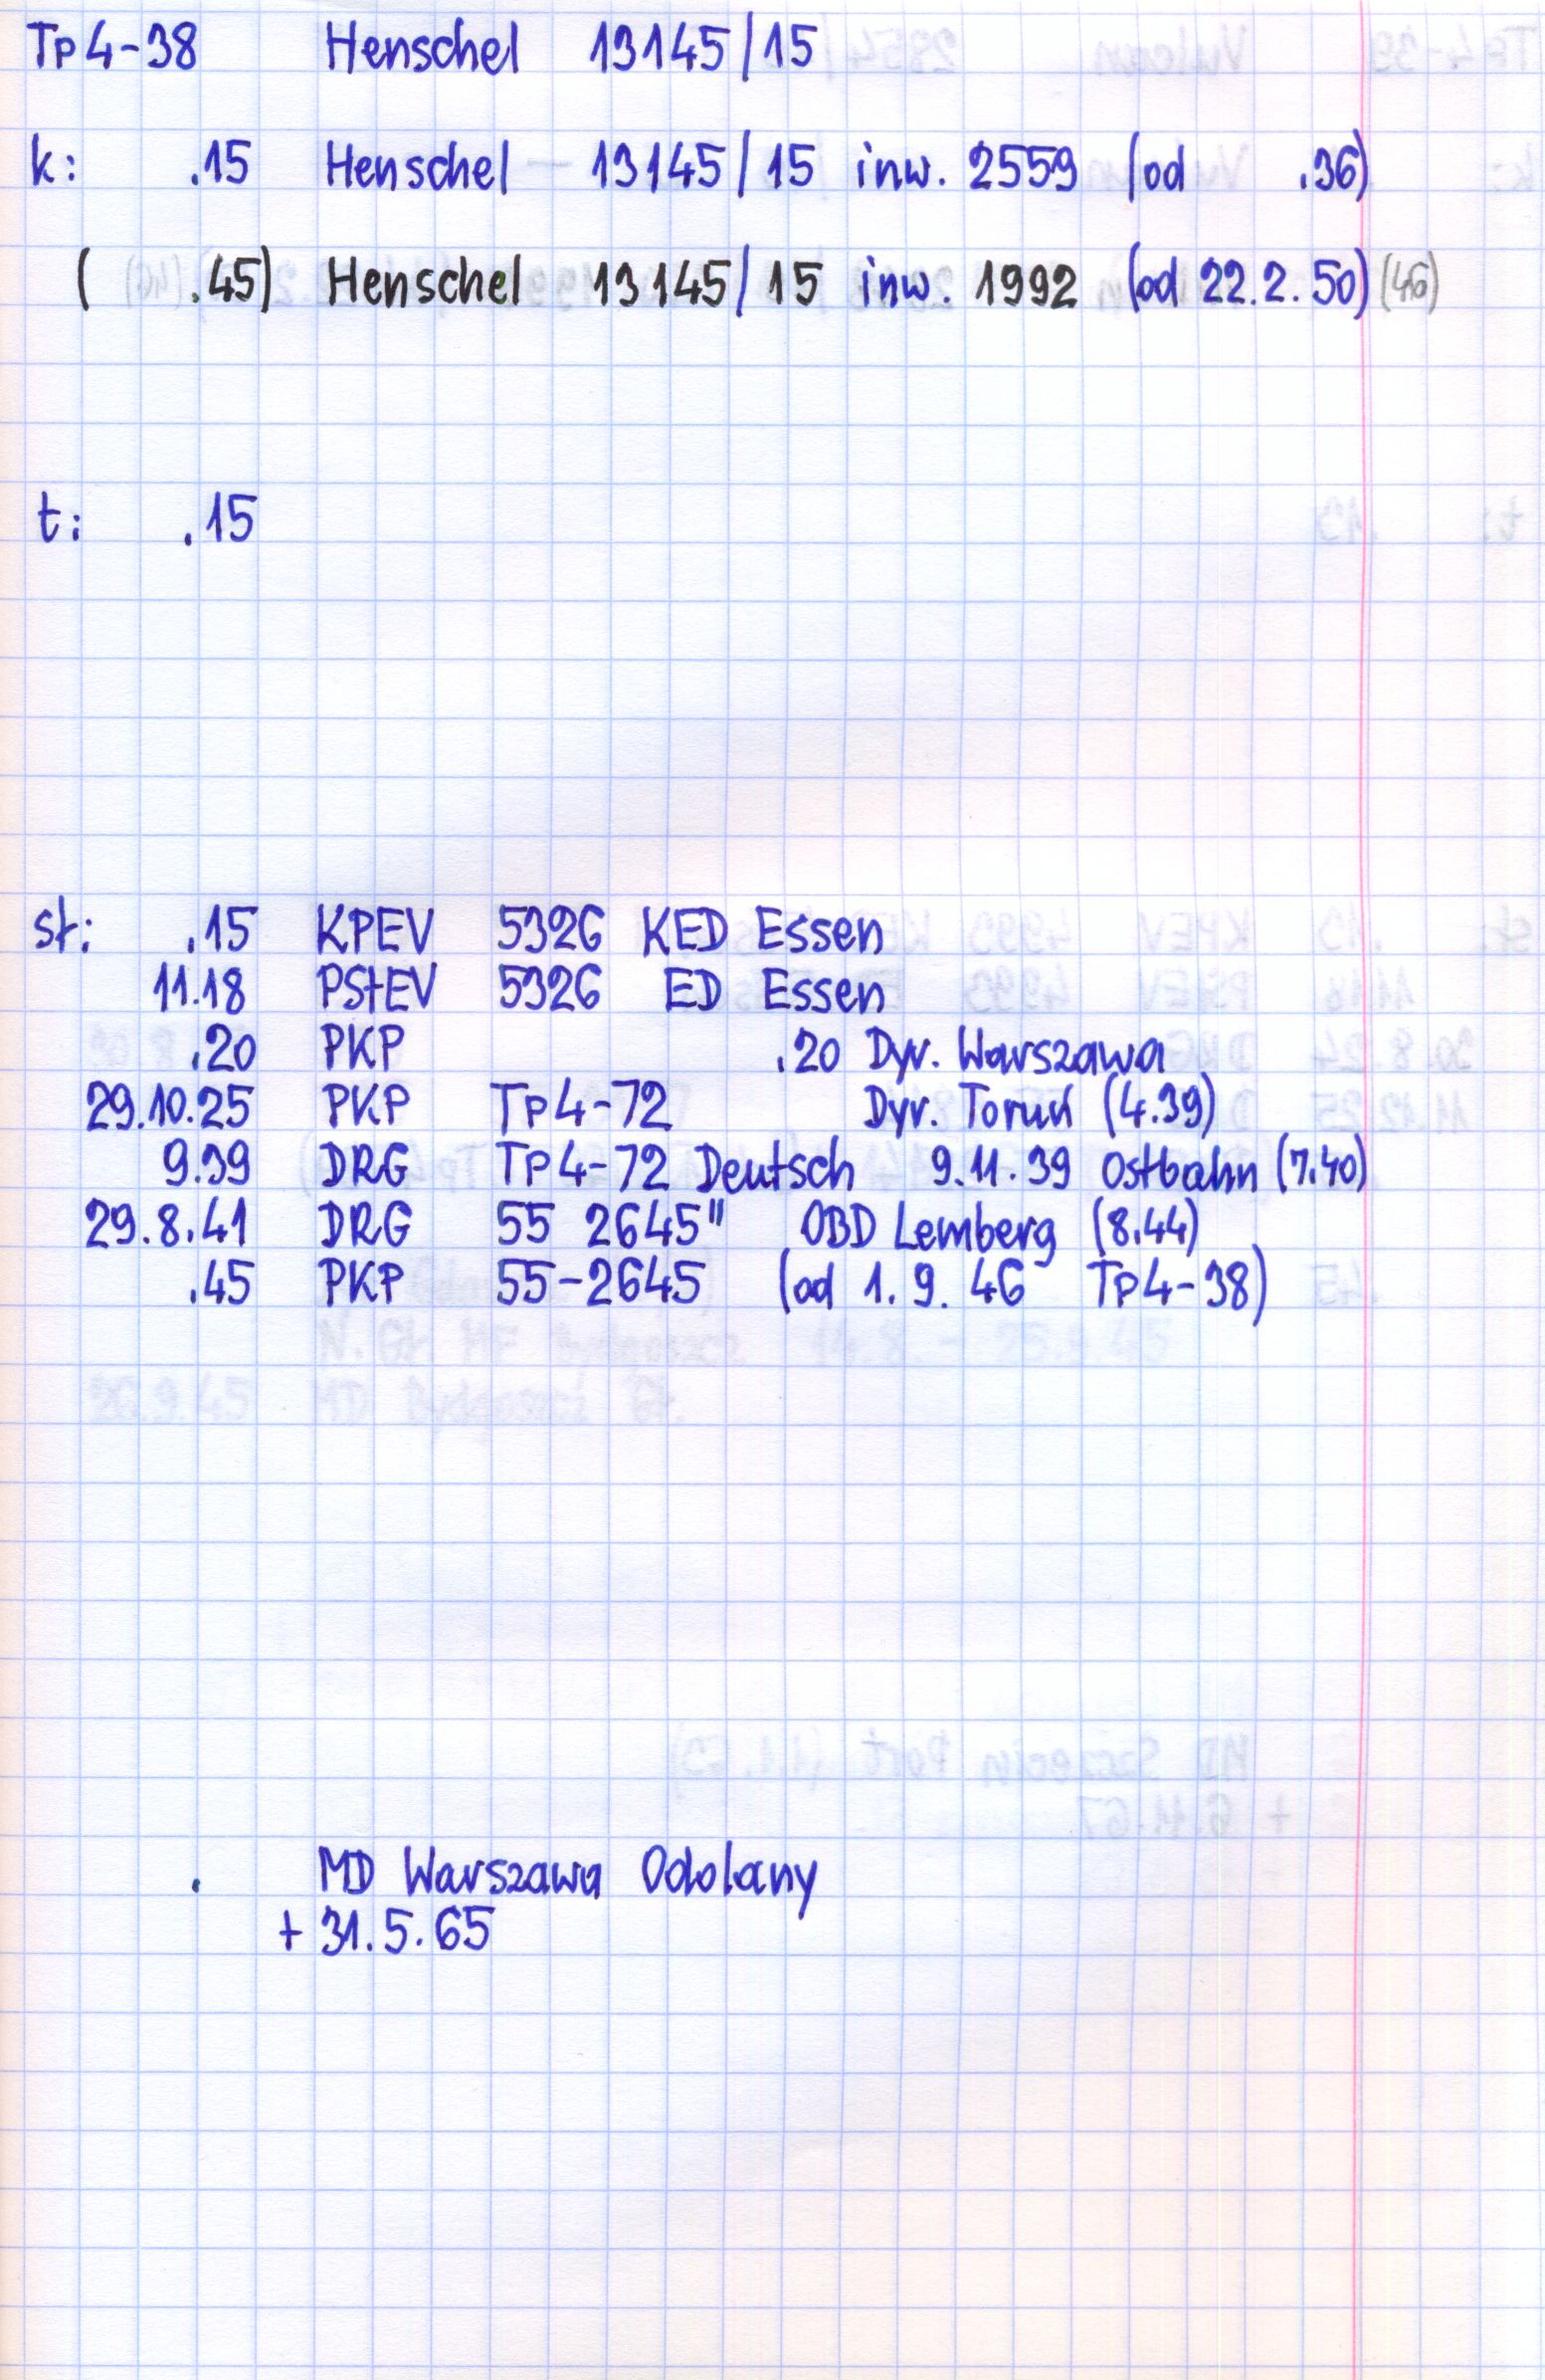 Tp4-38 Henschel 13145/15
k: .15 Henschel 13145/15 inw. 2559 (od .36)
( .45) Henschel 13145/15 inw. 1992 (od 22.2.50) (46)
t: .15
st: .15 KPEV 5326 KED Essen
11.18 PStEV 5326 ED Essen
.20 PKP .20 Dyr. Warszawa
29.10.25 PKP Tp4-72 Dyr. Toruń (4.39)
9.39 DRG Tp4-72 Deutsch 9.11.39 Ostbahn (7.40)
29.8.41 DRG 55 2645" OBD Lemberg (8.44)
.45 PKP 55-2645 (od 1.9.46 Tp4-38)
. MD Warszawa Odolany
+ 31.5.65